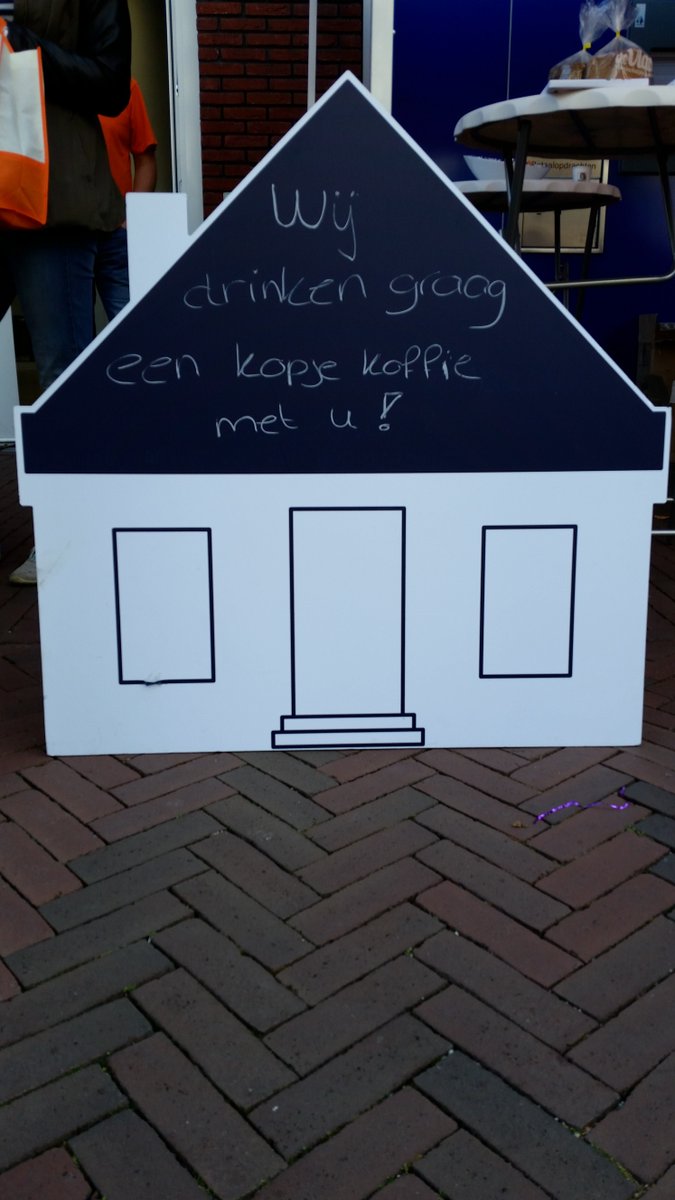 Wij
drinken graag
een kopje koffie
met u!